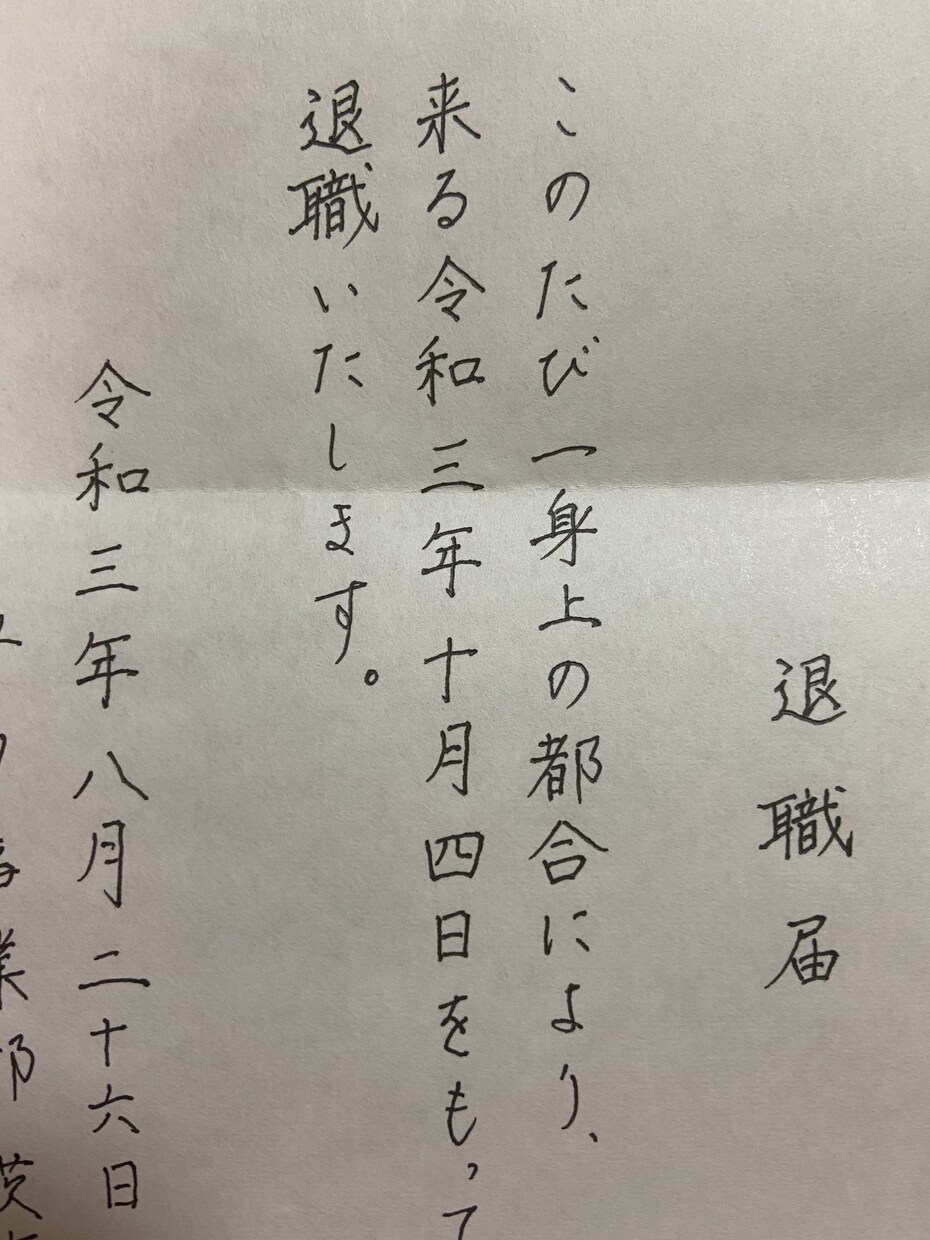 退職届
このたび一身上の都合により、
来る令和三年十月四日をもって
退職いたします。
令和三年八月二十六日
業部